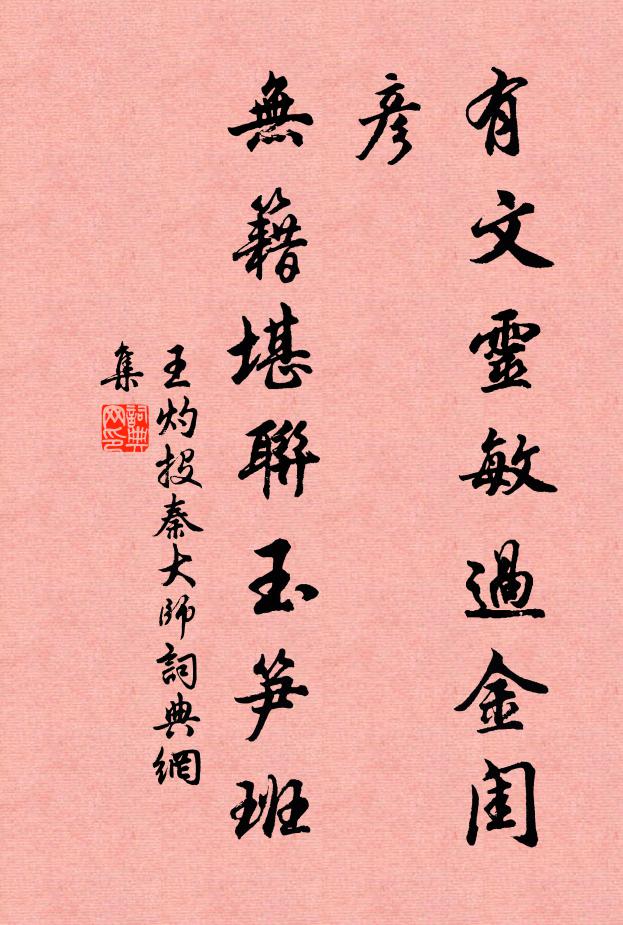 有文靈敏過金閨
彦
無籍堪聯玉笋班
王灼投秦大師詞典網
集
詞典網印